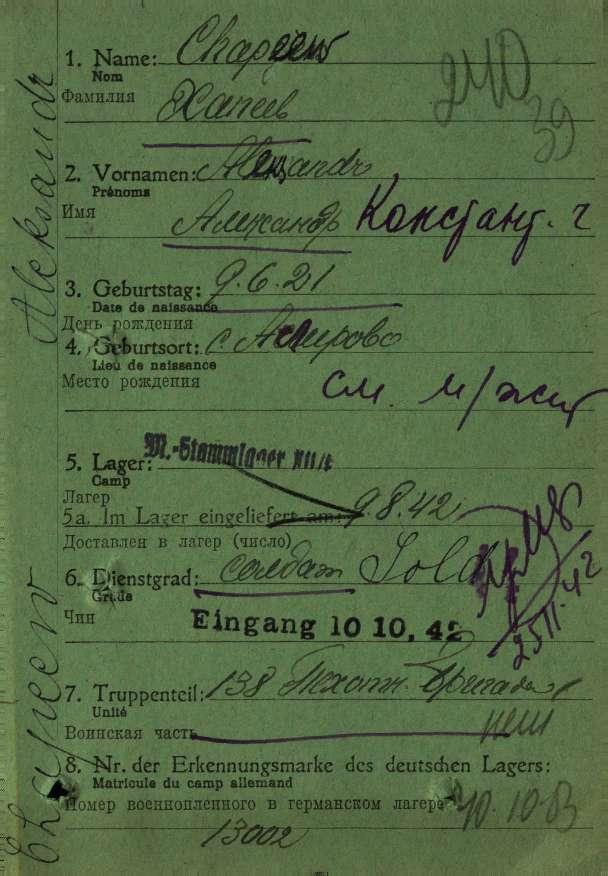 1. Name: Chapeew
Nom
Фамилия
Хапеев
240
39
2. Vornamen: Alexandr
Prénoms
Имя
Александр Констант. ч
3. Geburtstag: 9.6.21
Date de naissance
День рождения
4. Geburtsort: с
Lieu de naissance
Место рождения
см. м/жит
5. Lager: M.-Stammlager
Camp
Лагер
5a. Im Lager eingeliefert am: 9.8.42
Доставлен в лагер (число)
6. Dienstgrad: солдат Sold
Grade
Чин
Eingang 10 10. 42
25 III. 42
7. Truppenteil: 138 Пехотн. бригада
Unité
Воинская часть
пеш
8. Nr. der Erkennungsmarke des deutschen Lagers:
Matricule du camp allemand
Номер военнопленного в германском лагере
13002
Chapeew Aleksandr